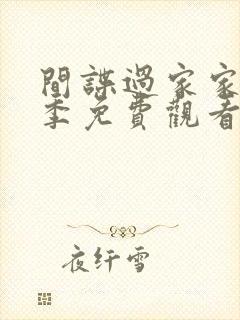 間諜過家家
季免費觀看
夜纤雪